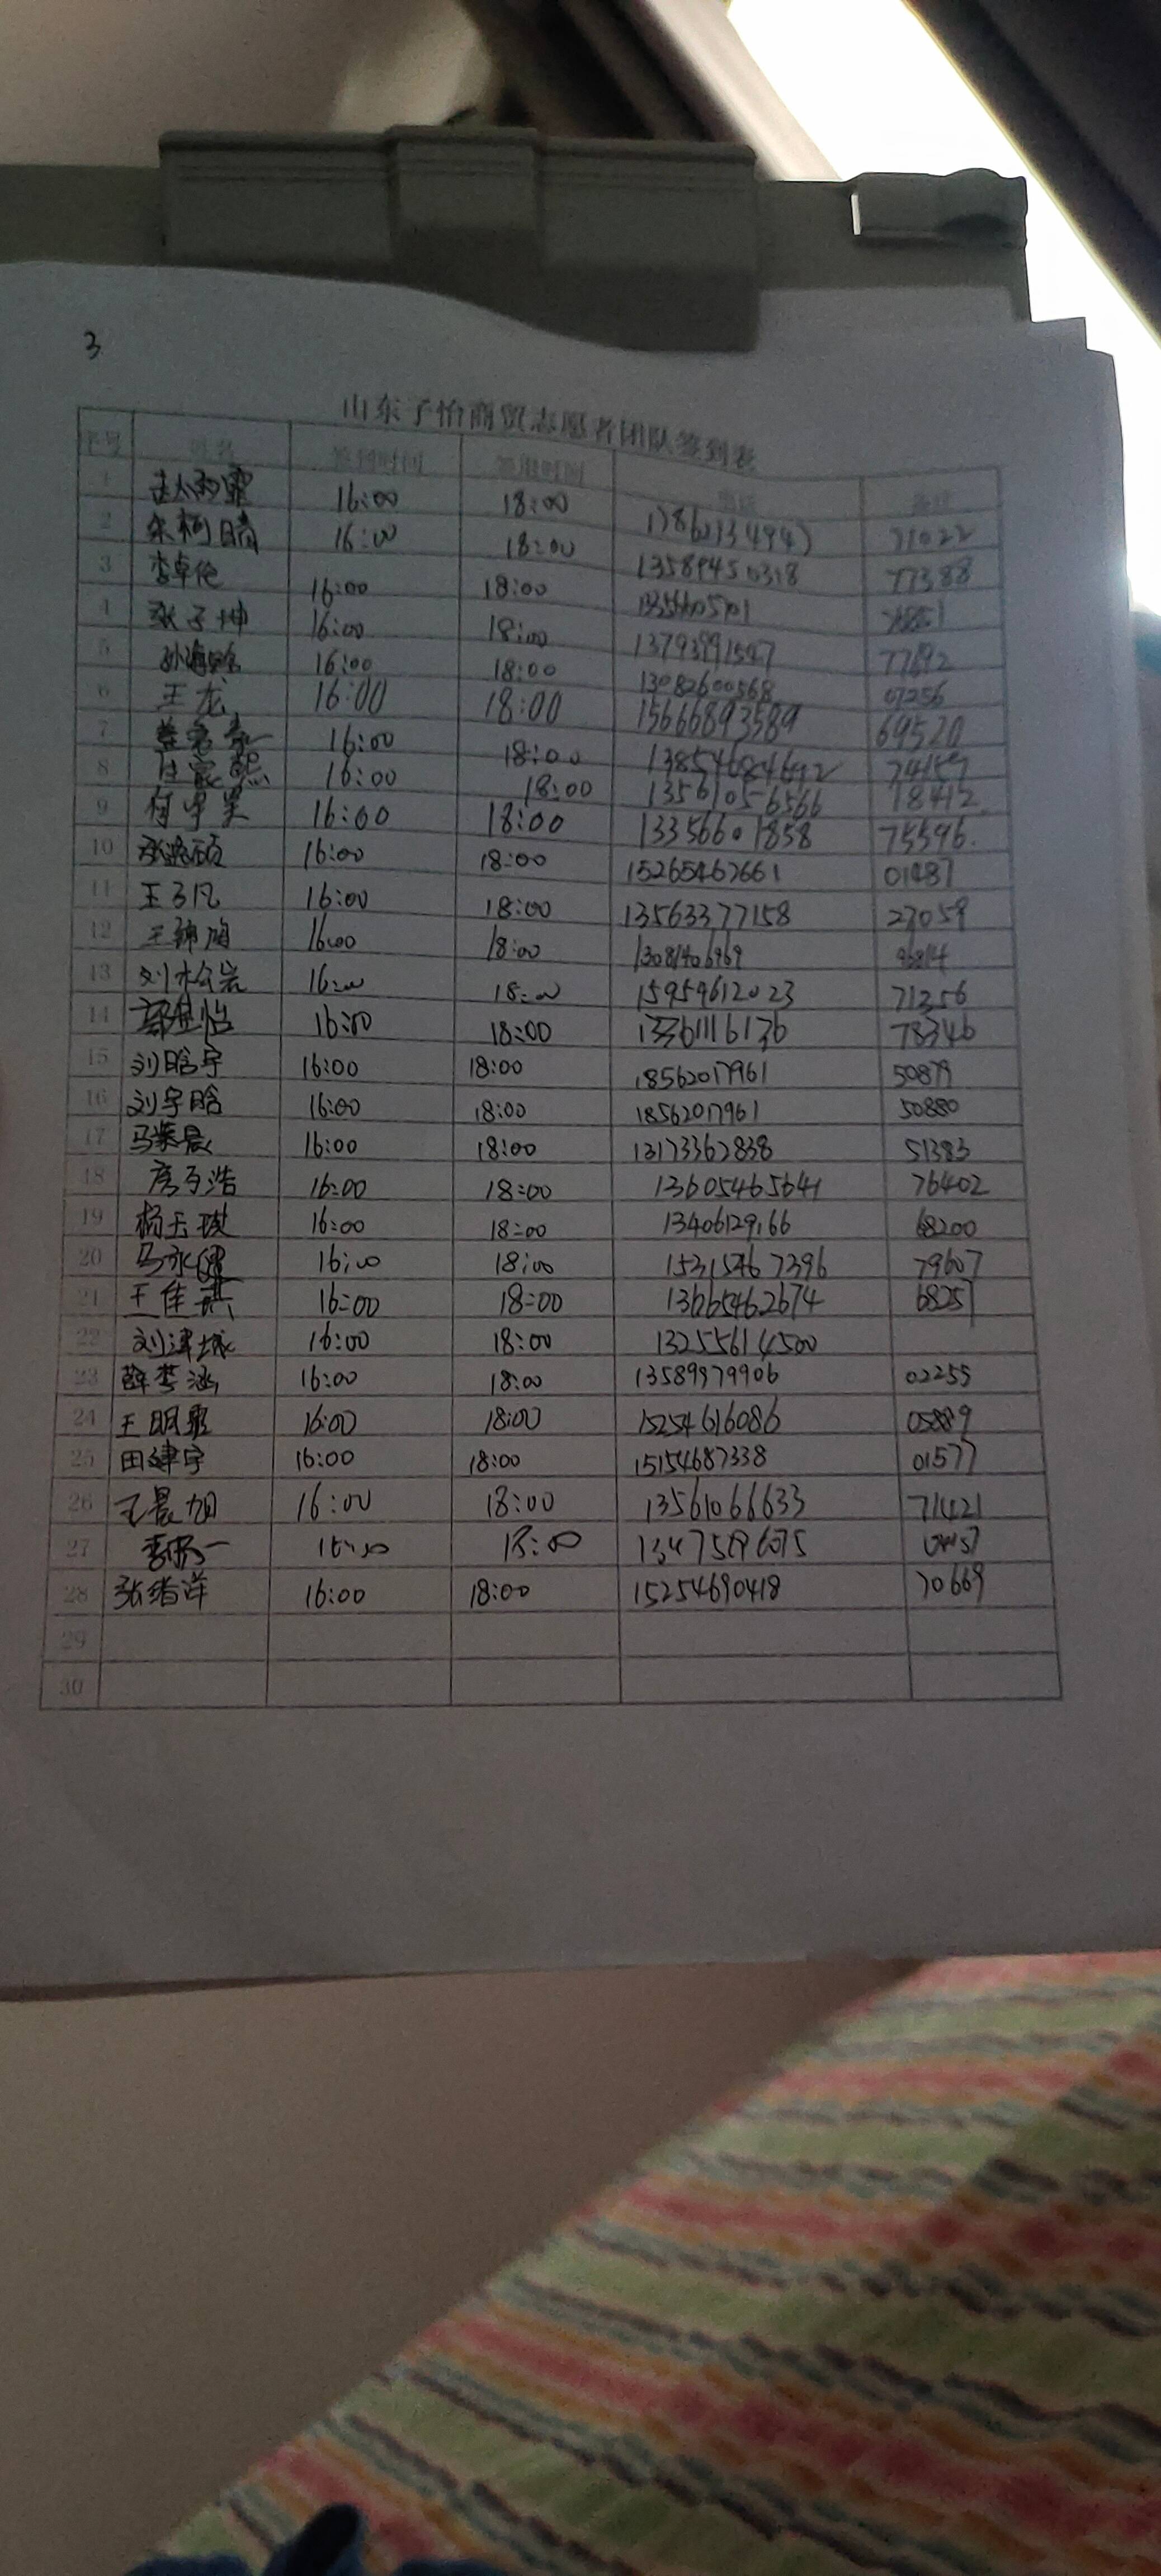 3
山东子怡商贸志愿者团队签到表
序号 姓名 签到时间 签退时间 电话 备注
1 16:00 18:00 71022
2 16:00 18:00 13589450318 77388
3 李卓伦 16:00 18:00
4 张子坤 16:00 18:00 13793991547 77892
5 16:00 18:00 13082600568 07256
6 王龙 16:00 18:00 15666893589 69520
7 16:00 18:00 13854684692 74159
8 16:00 18:00 13561056566 78412
9 何宇昊 16:00 18:00 13356601858 75596.
10 16:00 18:00 15265467661 01487
11 王子凡 16:00 18:00 13563377158 27059
12 16:00 18:00 13081406969
13 刘松岩 16:00 18:00 15959612023 71356
14 16:00 18:00 78346
15 刘晗宇 16:00 18:00 18562017961 50879
16 刘宇晗 16:00 18:00 18562017961 50880
17 16:00 18:00 13173362838 51383
18 16:00 18:00 13605465641 76402
19 杨玉琪 16:00 18:00 13406129166 68200
20 马永健 16:00 18:00 15315467396 79607
21 王佳琪 16:00 18:00 13665462674 68257
22 刘津城 16:00 18:00 13255614500
23 薛梦涵 16:00 18:00 13589979906 02255
24 16:00 18:00 15254616086 05889
25 田建宇 16:00 18:00 15154687338 01577
26 王晨旭 16:00 18:00 13561066633 71421
27 18:00
28 张绪洋 16:00 18:00 15254690418 70669
29
30